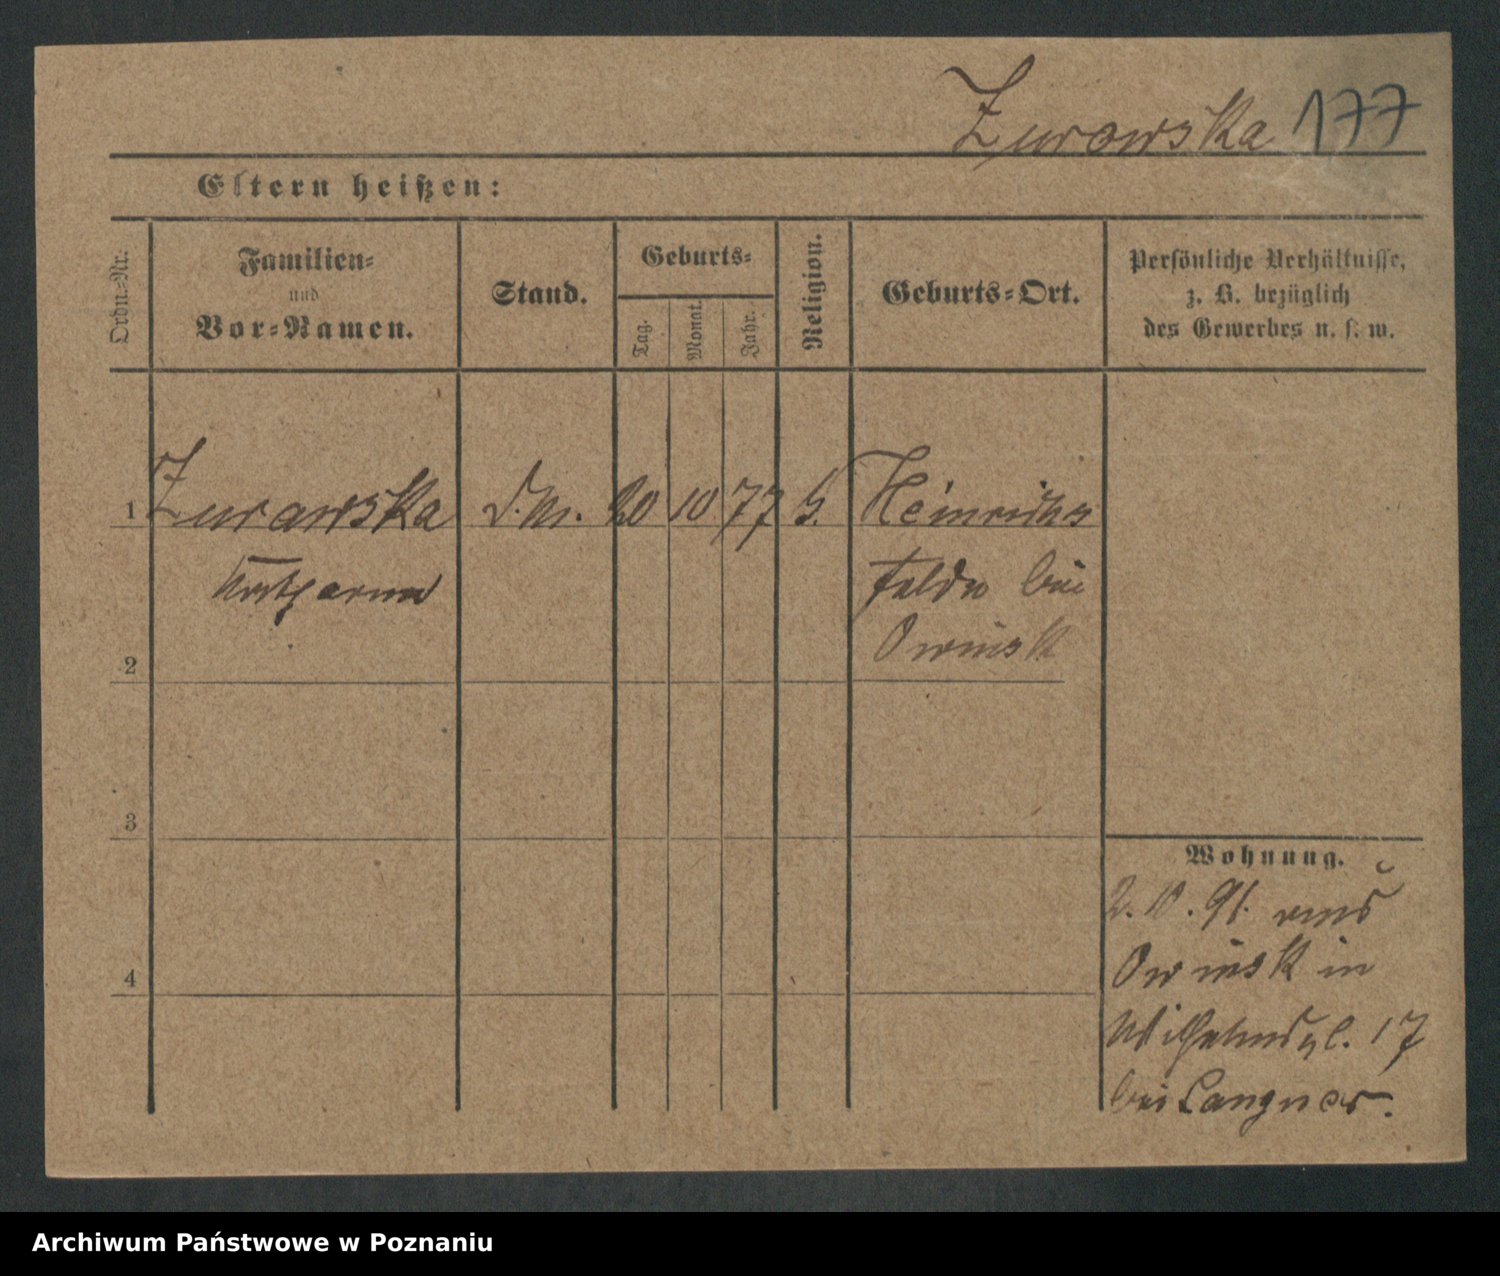 Zurowska 177
Eltern heißen:
Ordn.-Nr.
Familien-
und
Vor-Namen.
Stand.
Geburts-
Tag.
Monat.
Jahr.
Religion.
Geburts-Ort.
Persönliche Verhältnisse,
z. B. bezüglich
des Gewerbes u. s. w.
1 Zurawska 20 10 77 Heinrichs
Katharina felde bei
Owinsk
2
3
4
Wohnung.
2. 10. 91. aus
Owinsk in
Wilhelmspl. 17
bei Langner.
Archiwum Państwowe w Poznaniu